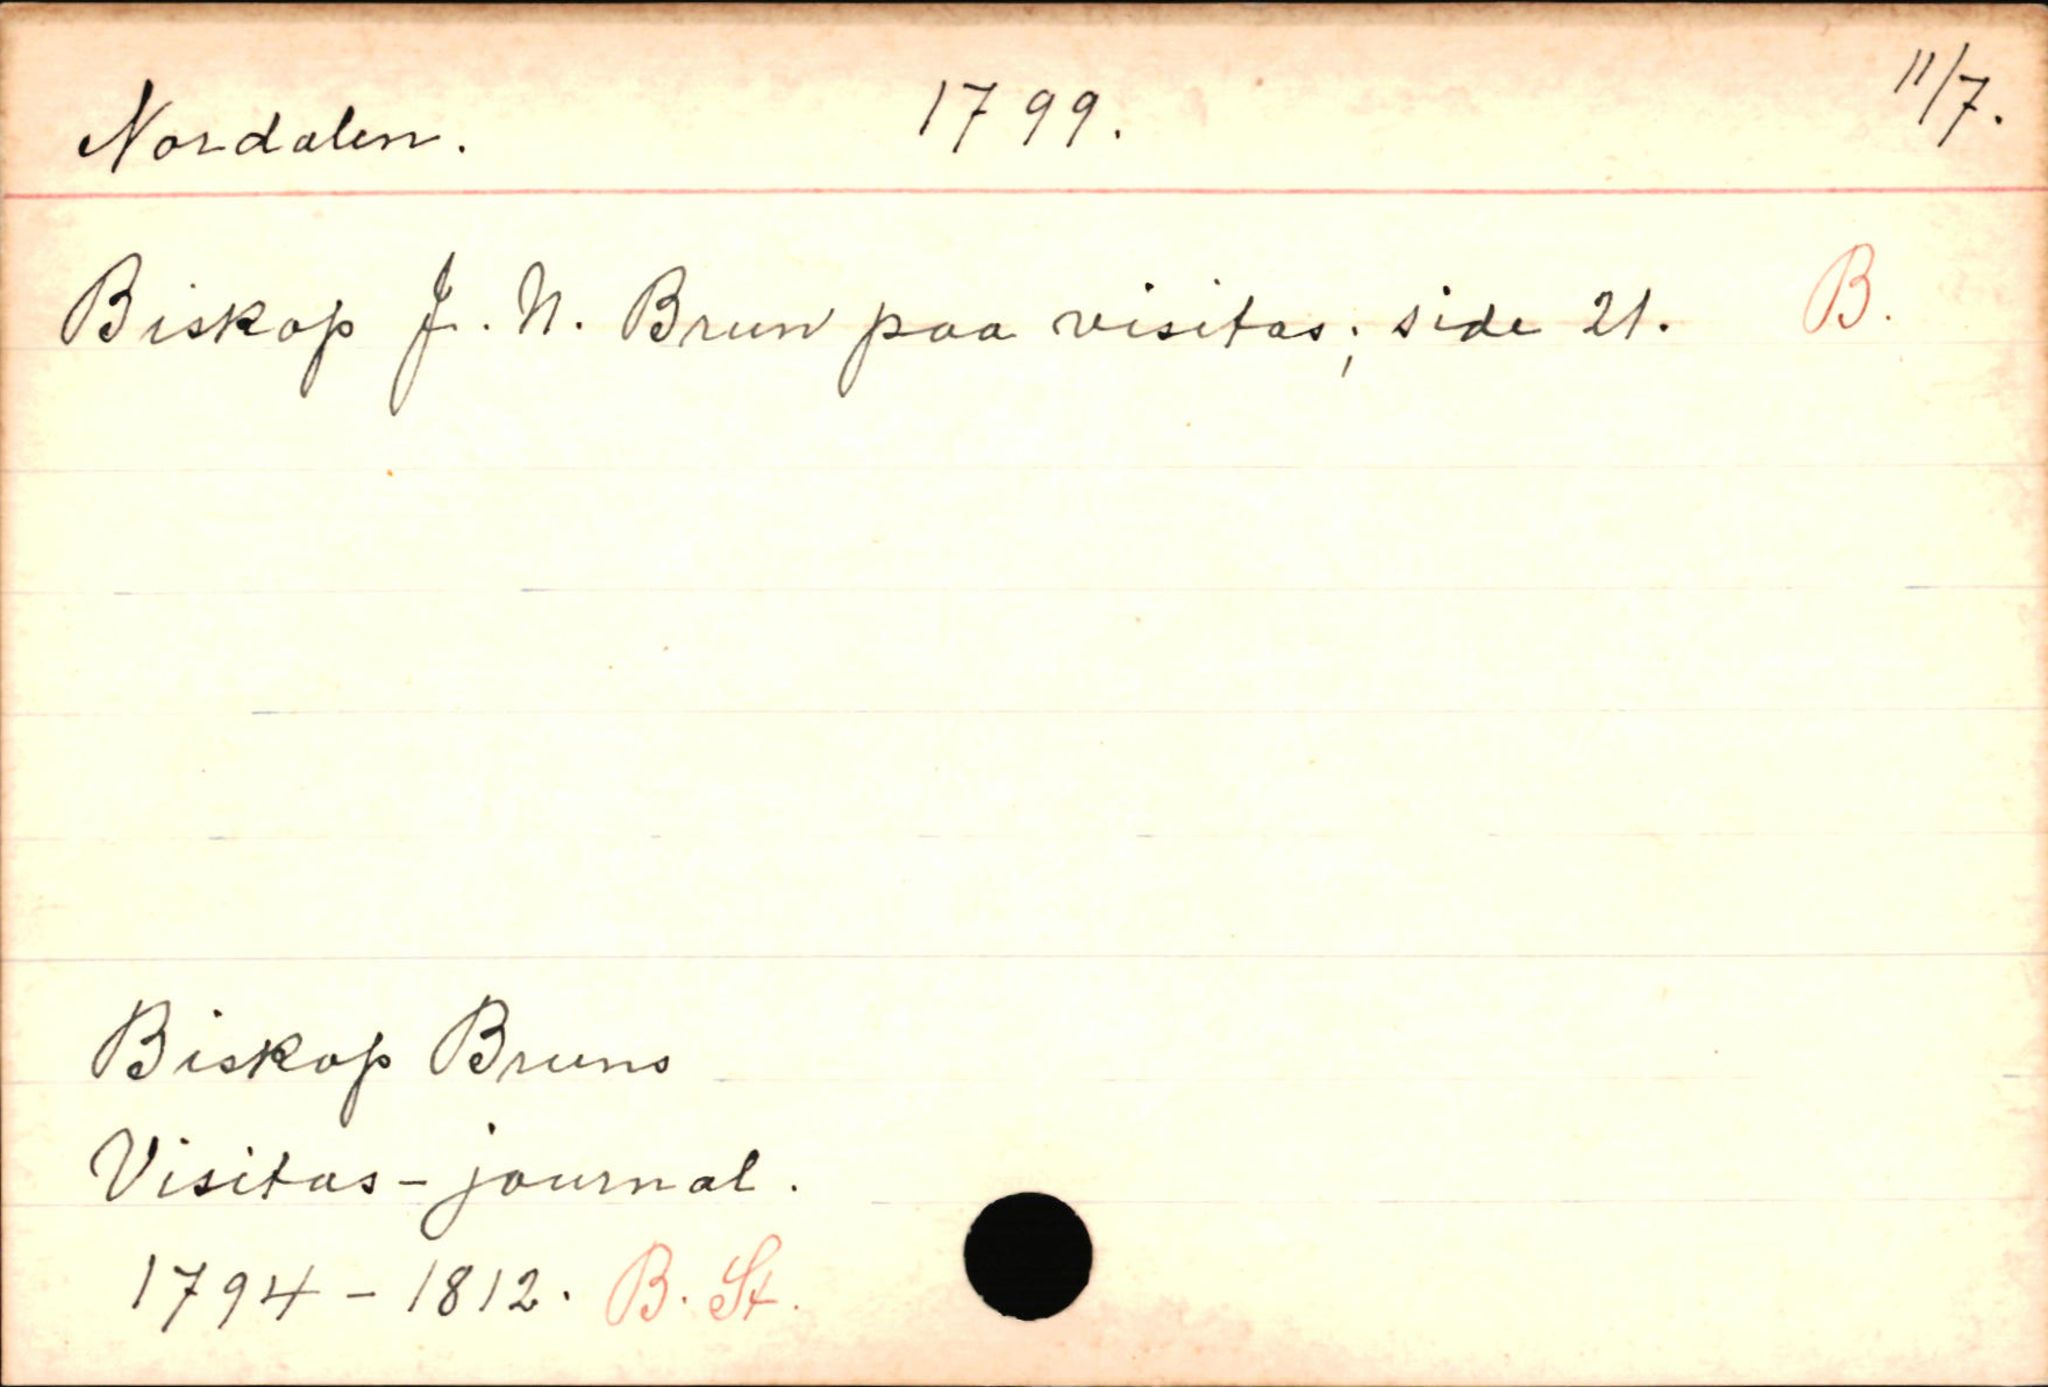 Nordalen. 1799. 11/7.
Biskop J. N. Brun paa visitas; side 21. B.
Biskop Bruns
Visitas-journal.
1794-1812. B. St.